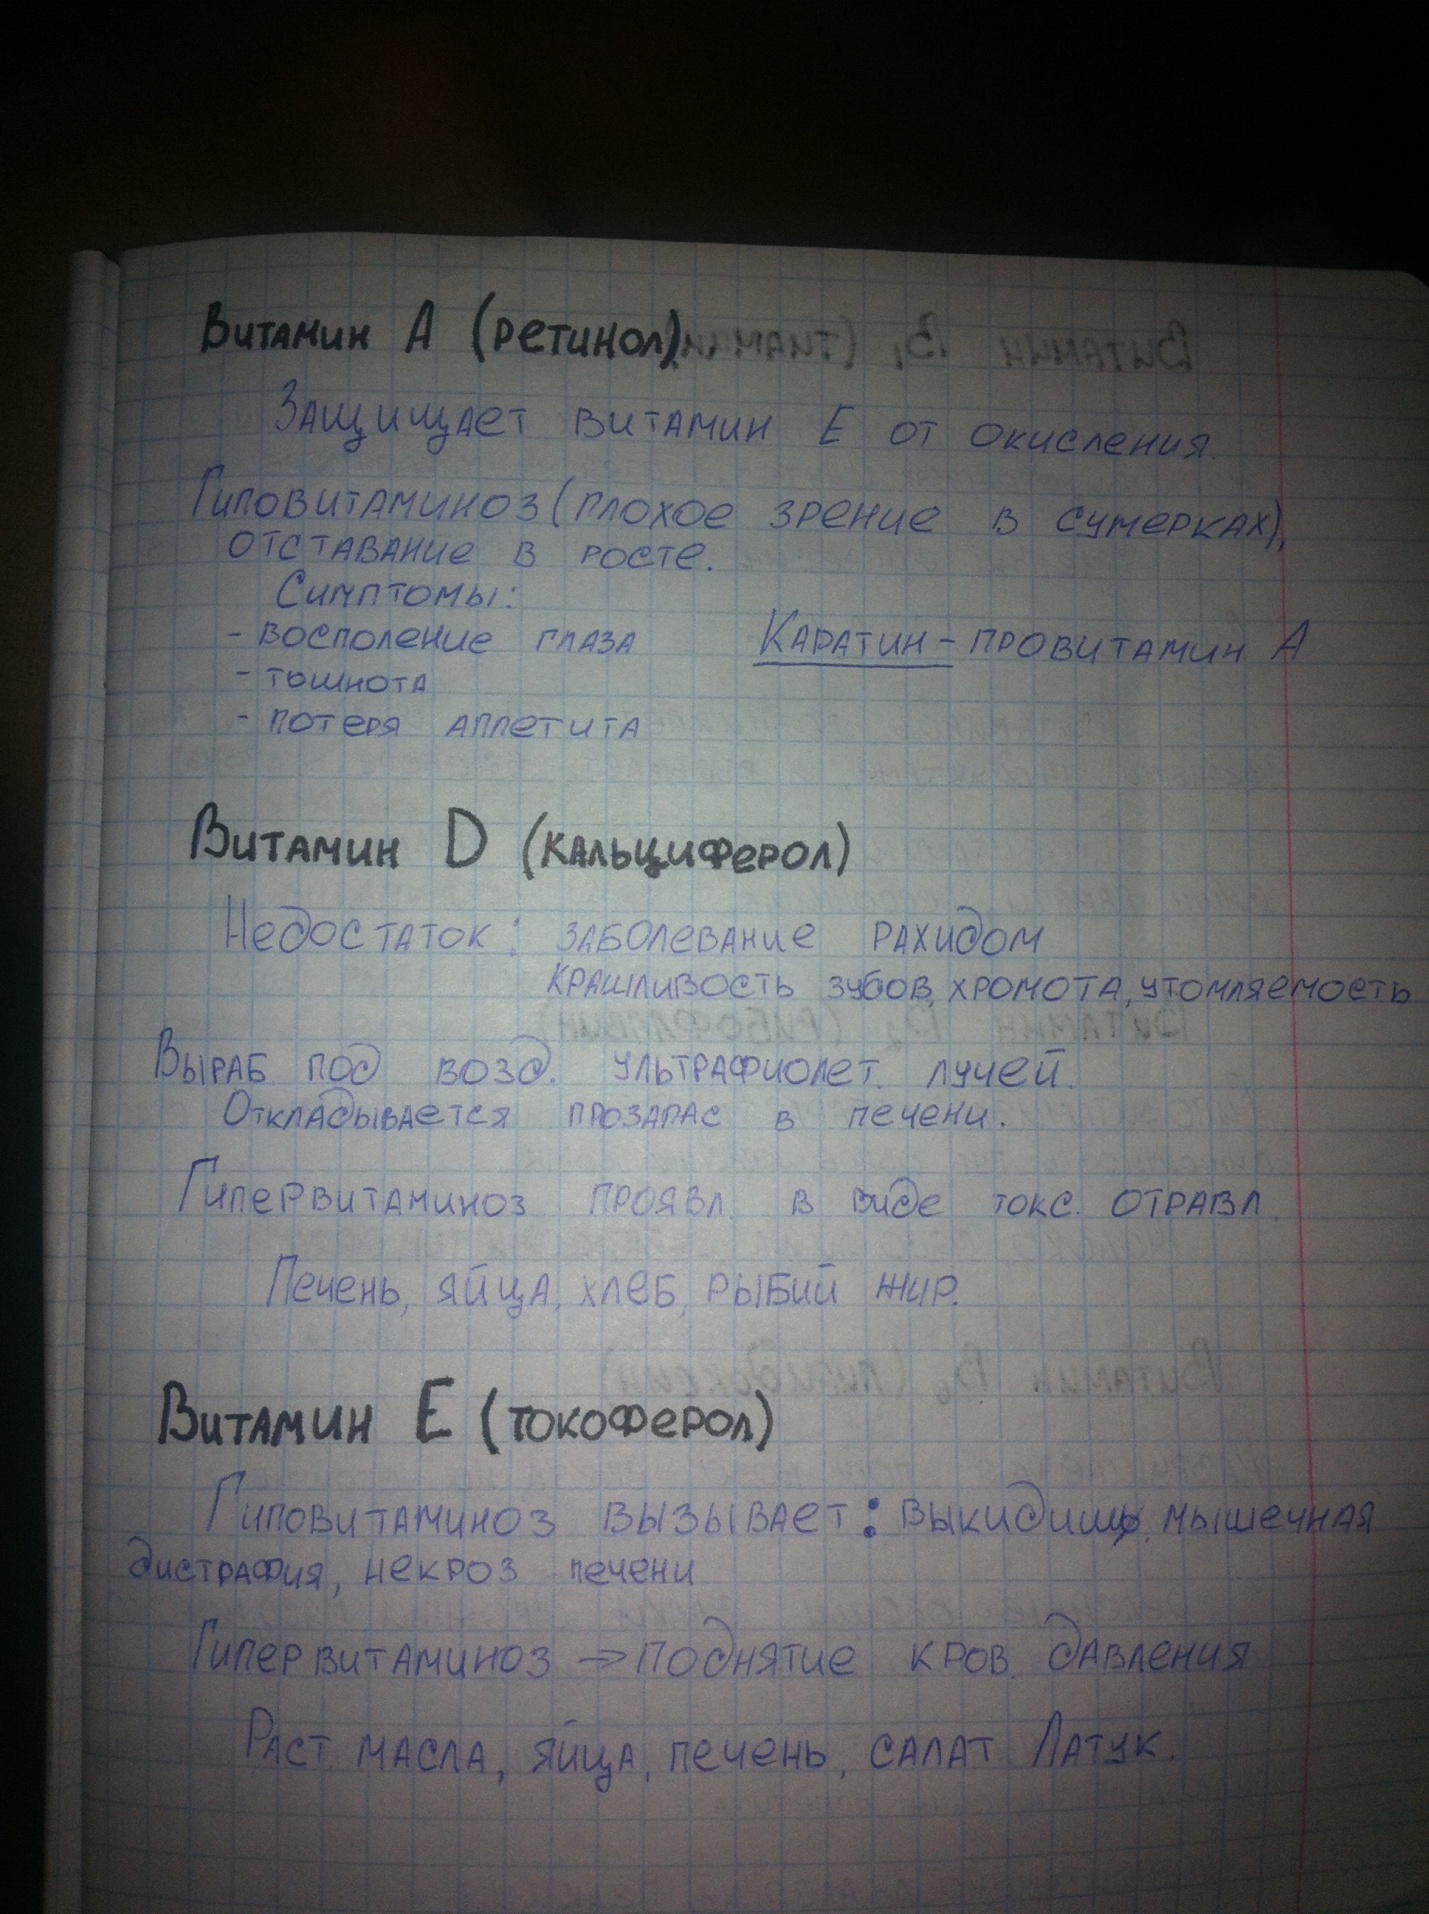 Витамин А (ретинол)
Защищает витамин Е от окисления.
Гиповитаминоз (плохое зрение в сумерках),
отставание в росте.
Симптомы:
- восполение глаза
Каратин - провитамин А
- тошнота
- потеря аппетита
Витамин D (кальциферол)
Недостаток: заболевание рахидом
крашливость зубов, хромота, утомляемость
Выраб под возд. ультрафиолет. лучей.
Откладывается прозапас в печени.
Гипервитаминоз проявл. в виде токс. отравл.
Печень, яйца, хлеб, рыбий жир.
Витамин Е (токоферол)
Гиповитаминоз вызывает: выкидиш, мышечная
дистрафия, некроз печени
Гипервитаминоз → поднятие кров. давления
Раст. масла, яйца, печень, салат Латук.